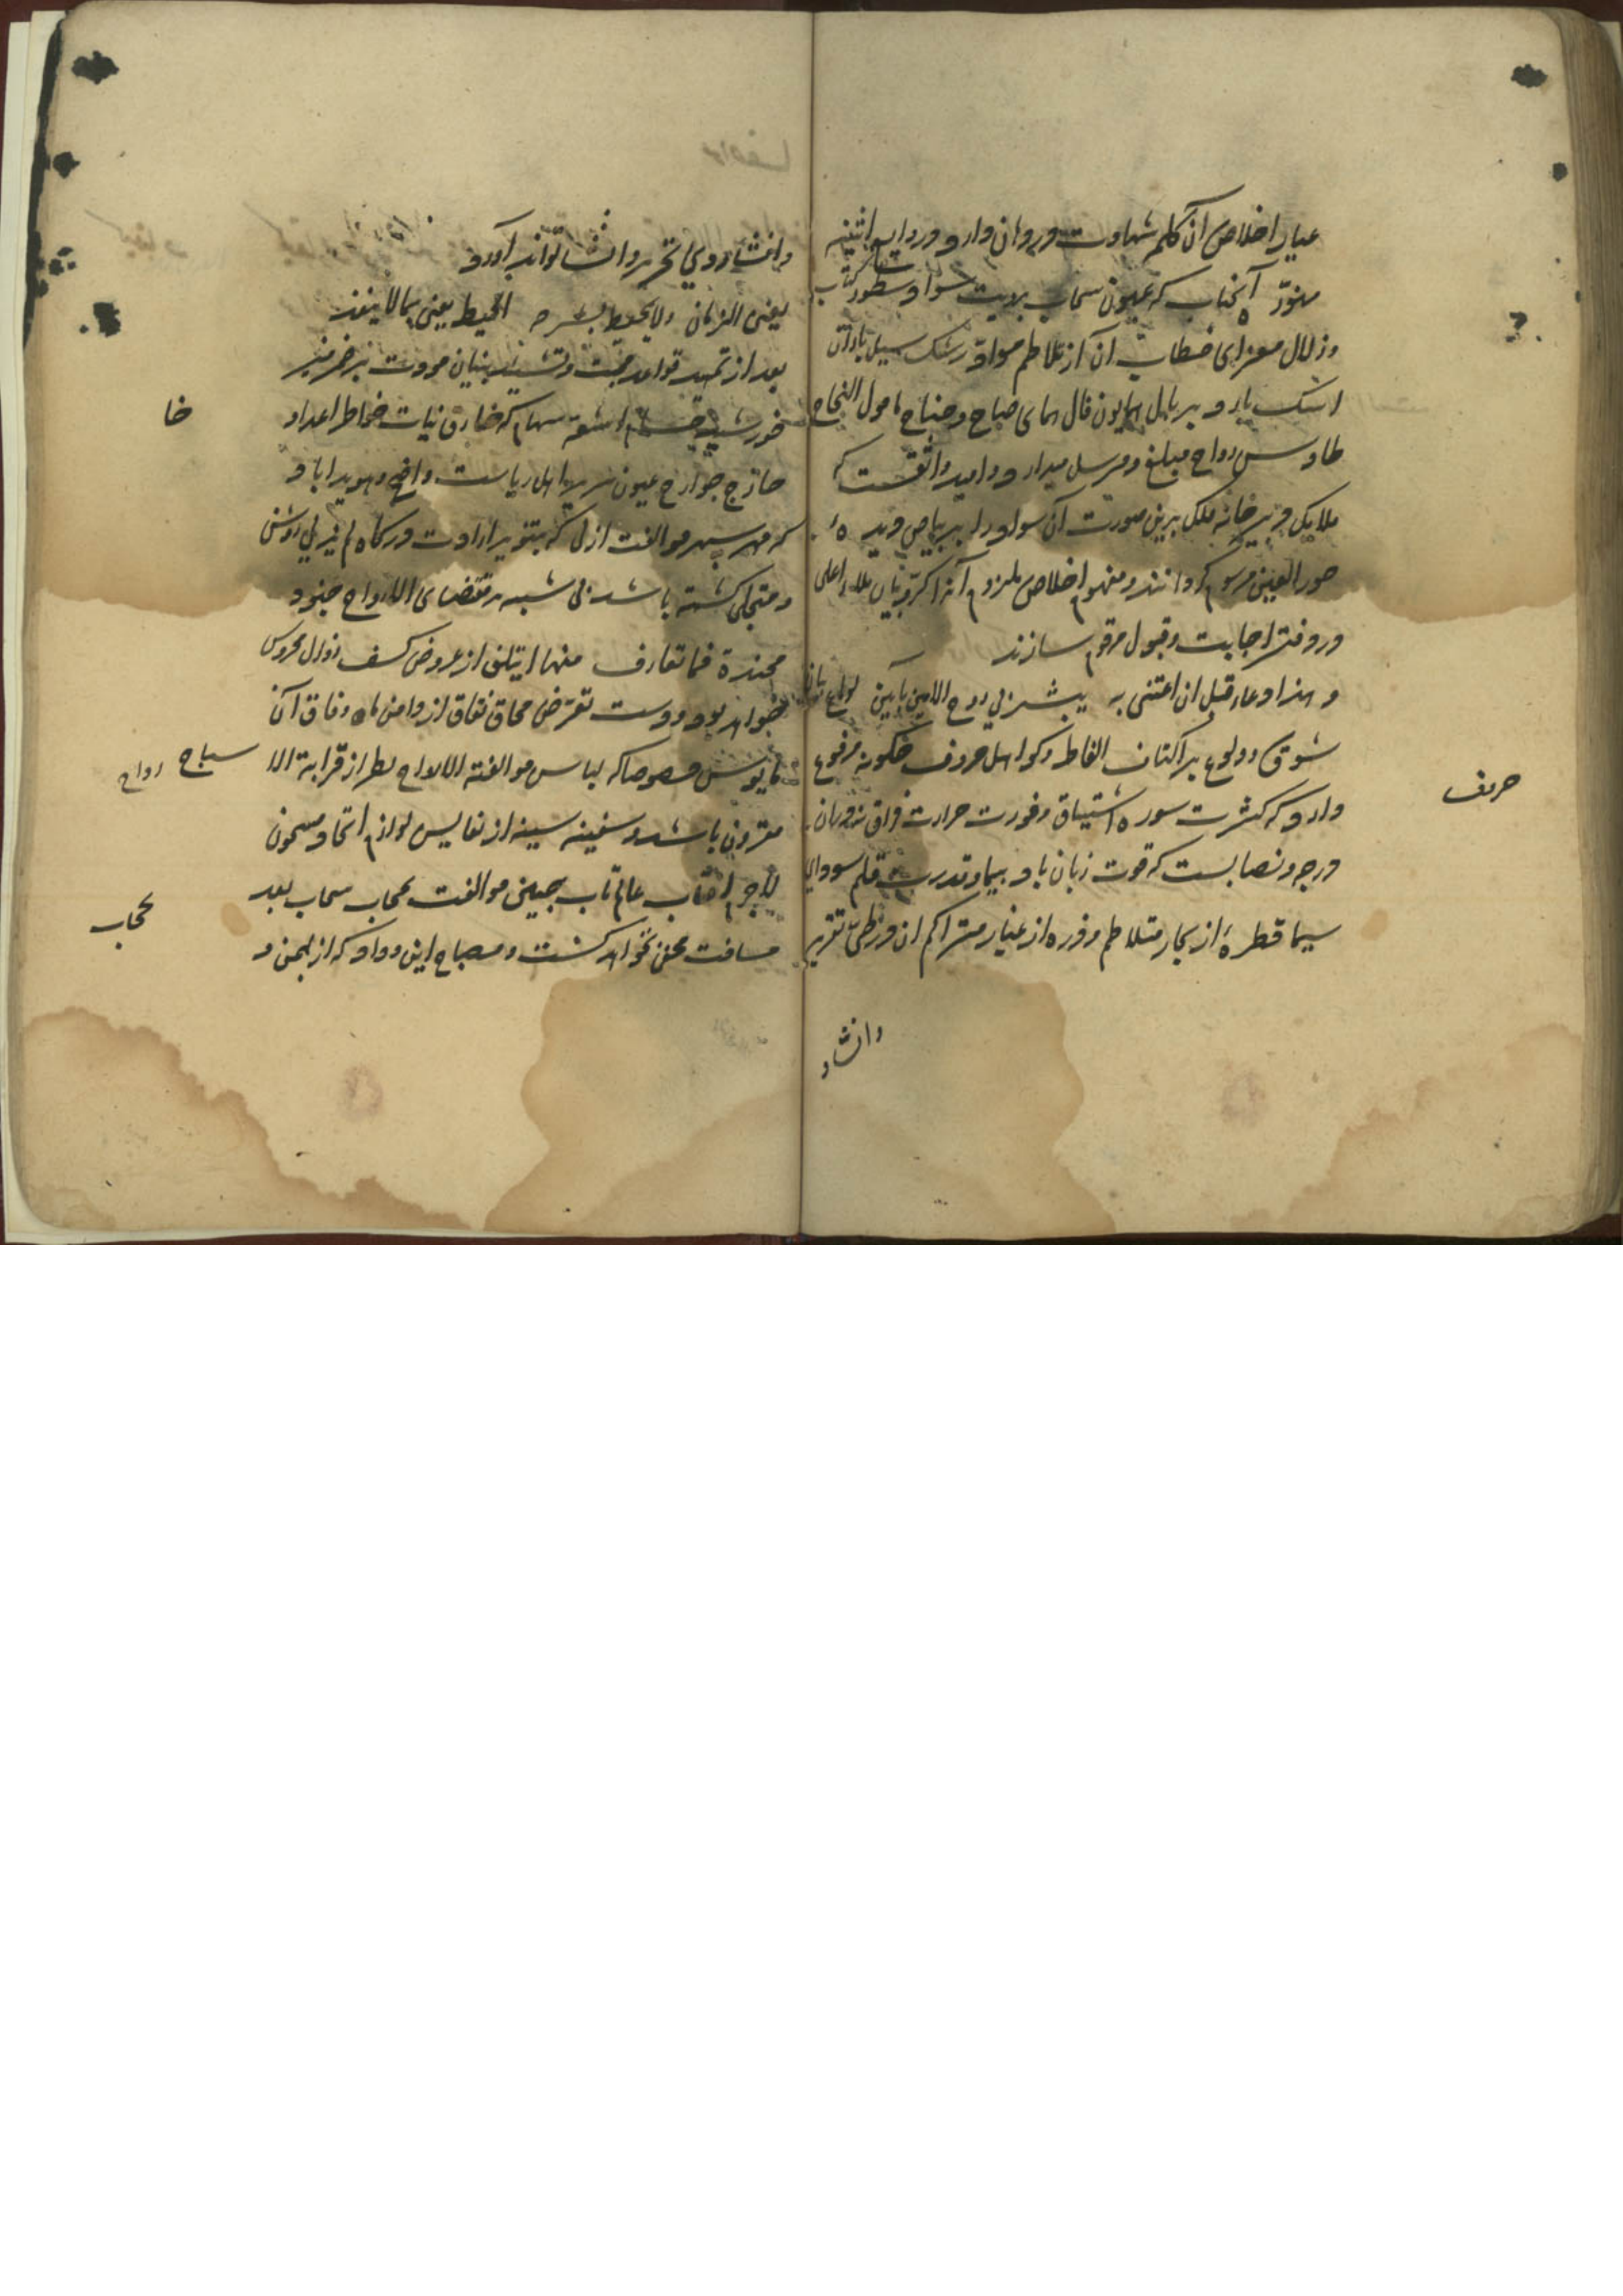 عیار اخلاص آن کلمه شهادت در دهان دارد و در داب اثنیه
منوّر آنجناب که عیون سحاب هدایت سواد سطور کتاب
و زلال معزای خطاب آن از تلاطم مواد رشک سیل باران
اشک بارد بر بال همایون فال همای صباح و جناح مامول النجاح
طاوس رواح مبلغ و مرسل میدارد و امید واثقست که
ملایک دبیرخانه ملک برین صورت آن سواد را بر بیاض دیده
حور العین مرسوم گردانند و مفهوم اخلاص ملزوم آنرا کروبیان ملاء اعلی
در دفتر اجابت و قبول مرقوم سازند
و هذا دعاء قبل ان اعتنی به یبشرنی روح الامین بآمین لواعج نیران
شوق و ولوع بر اکتاف الفاظ و کواهل حروف چگونه مرفوع
دارد که کثرت سورة اشتیاق و فورت حرارت فراق نه در آن
درجه و نصابست که قوت زبان باد پیما و قدرت قلم سودای
سیما قطرهٔ از بحار متلاطم و ذره از غبار متراکم آن در طی تقریر
وانشاد
حرف
وانشاد وی تحریر و انشا تواند آورد
یفنی الزمان ولا یحیط بشرحه المحیط یفنی بما لا ینفد
بعد از تمهید قواعد محبت و تشیید بنیان مودت بر ضمیر منیر
خورشید اشعه سهام که خارق نیات خواطر اعدا و
خا
جازح جوارح عیون سریر اهل ریاست واضح و هویدا باد
که مهر سپهر موالفت ازل که بتنویر ارادت درگاه لم یزلی روشن
و متجلی گشته باشد بی شبه بمقتضای الارواح جنود
مجندة فما تعارف منها ایتلف از عروض کسف زوال محروس
خواهد بود و دست تعرّض محاق نفاق از دامن ماه وفاق آن
مایوس خصوصا که لباس موالفة الالواح بطراز قرابة الا
سباح رواح
مقرون باشد و سفینه سینه از نفایس لوازم اتحاد مسحون
لاجرم آفتاب عالم تاب جبین موالفت بحجاب سحاب بعد
بحجاب
مسافت مختفی نخواهد گشت و مصباح این وداد که از یمن و